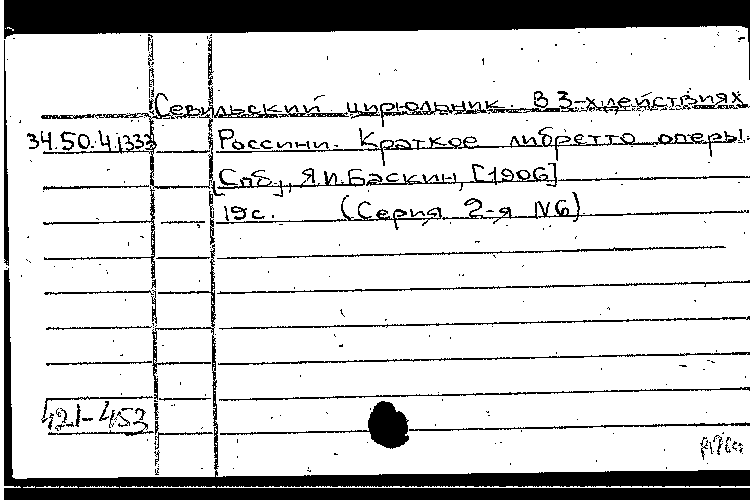 Севильский цирюльник. В 3-х действиях
34.50.4.1333 Россини. Краткое либретто оперы.
[Спб.], Я.И.Баскин, [1906]
19с. (Серия 2-я №6)
421-453